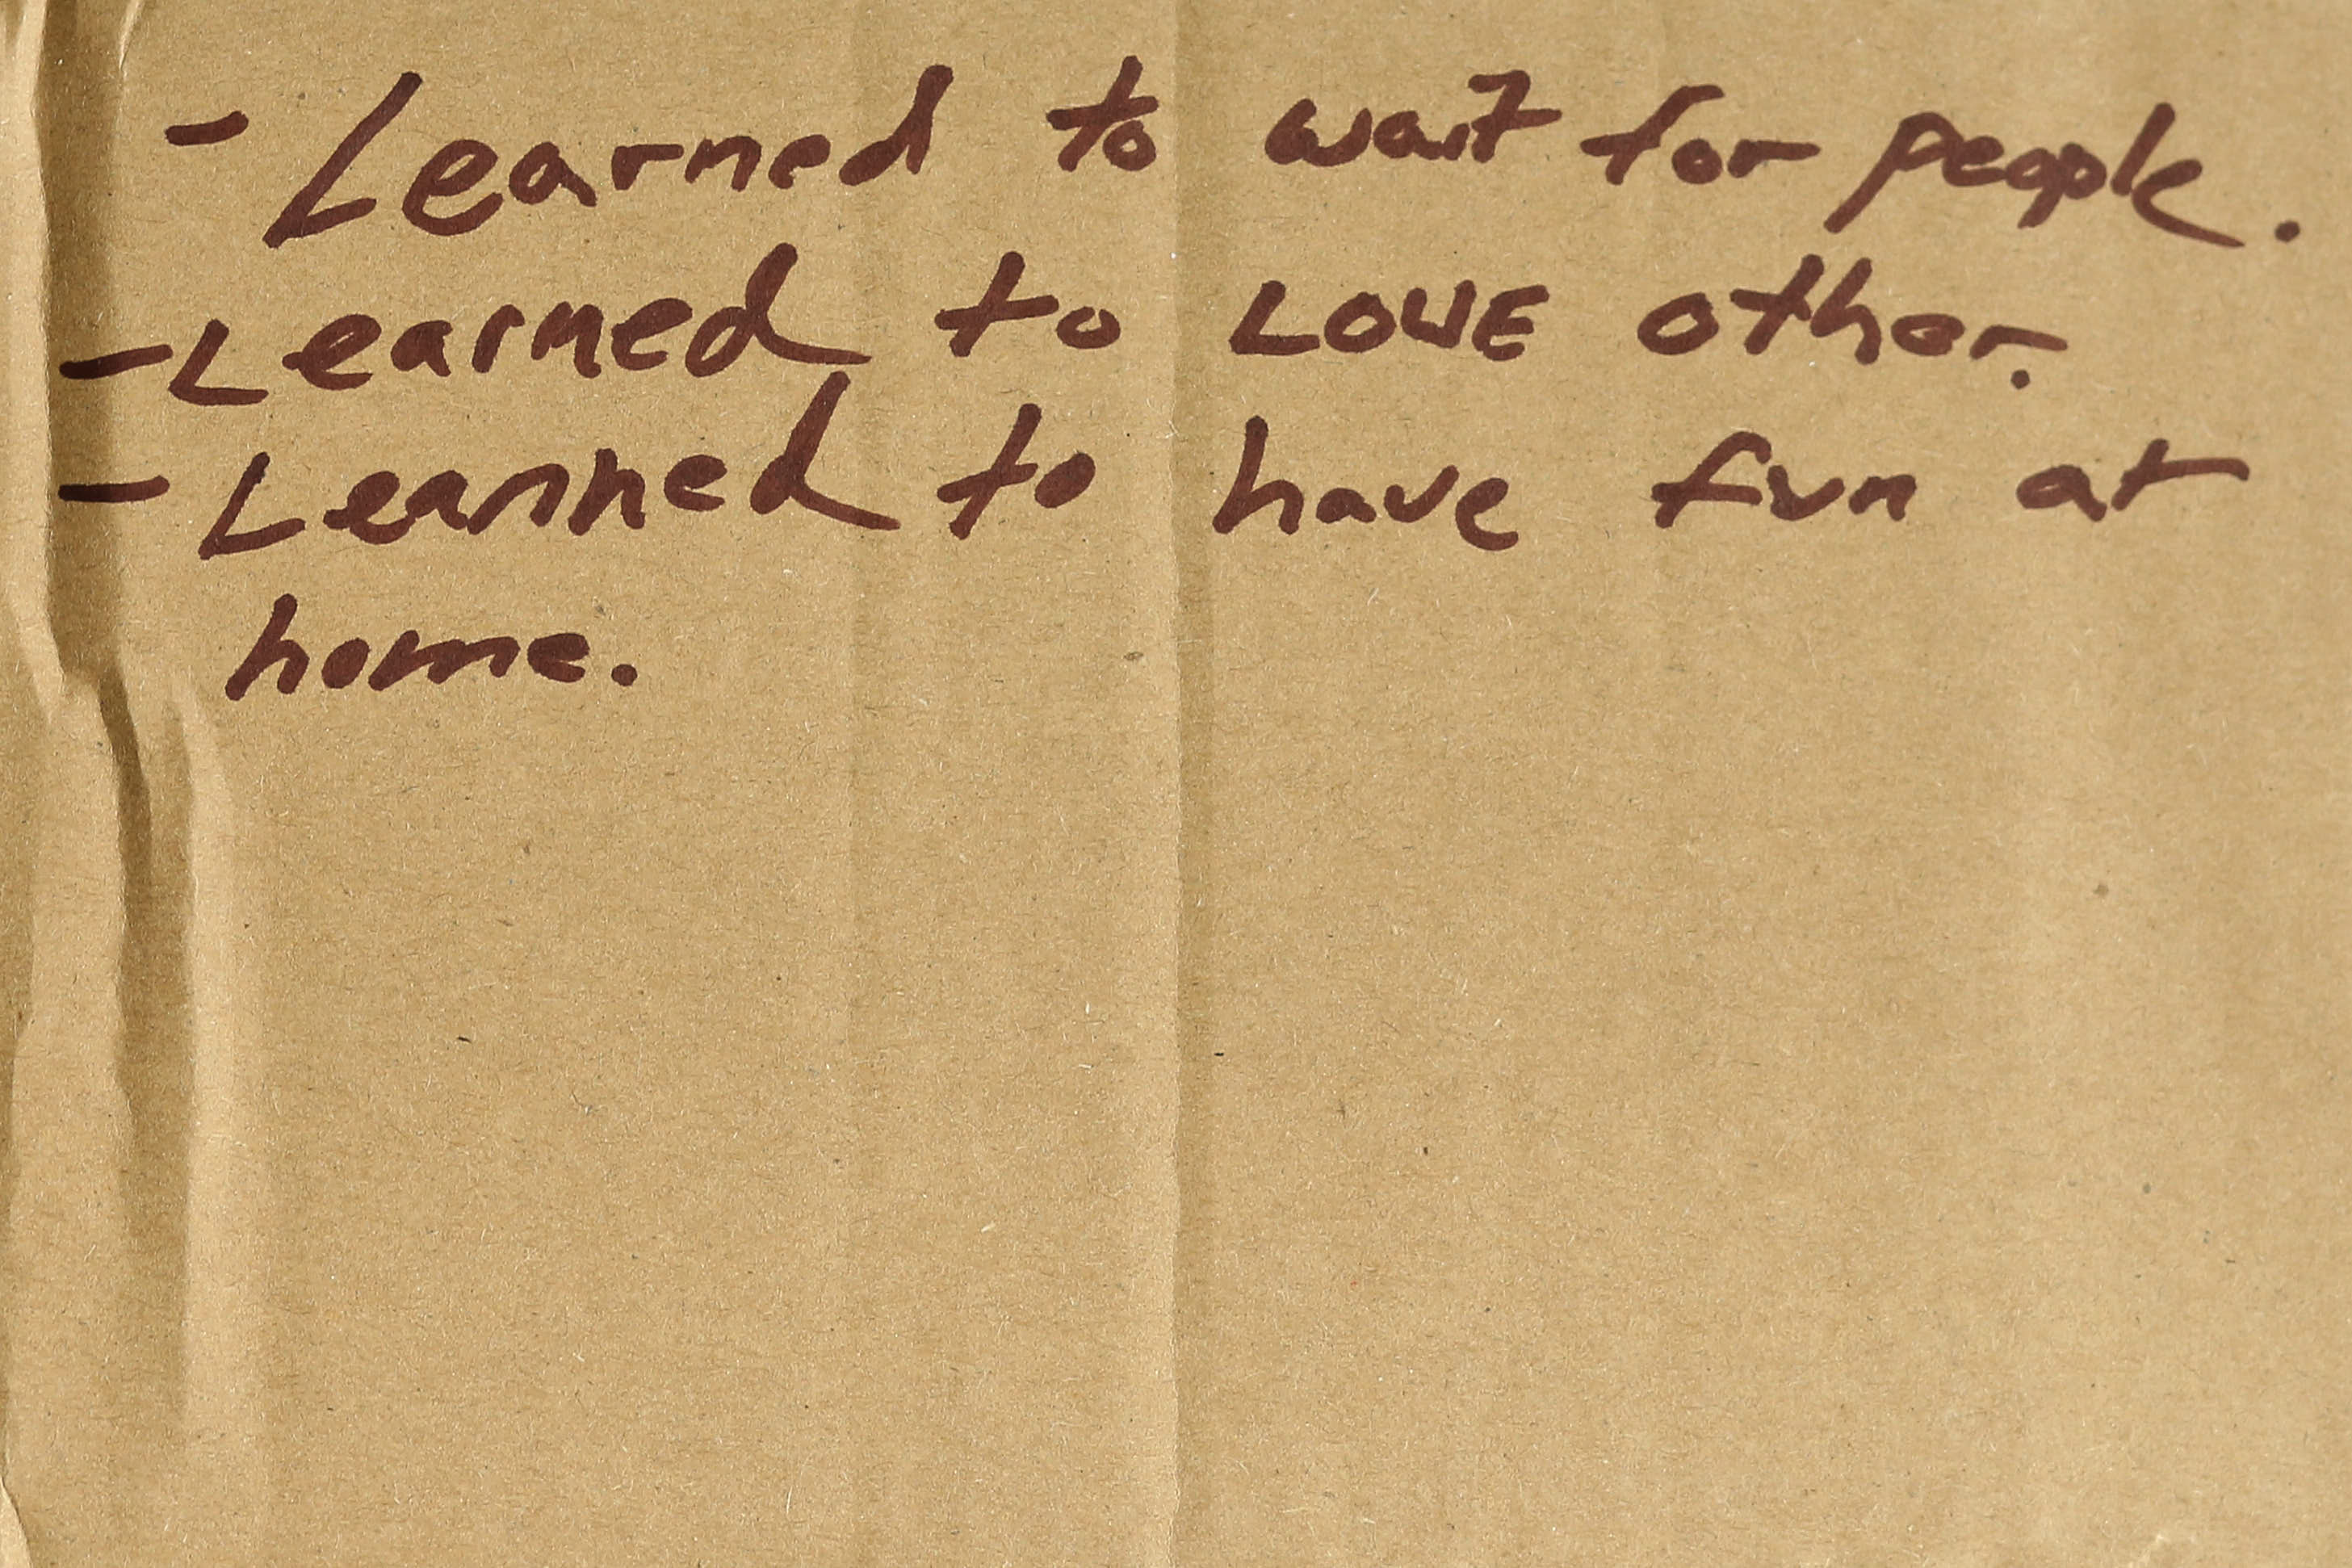 - Learned to wait for people.
- Learned to LOVE other.
- Learned to have fun at
home.